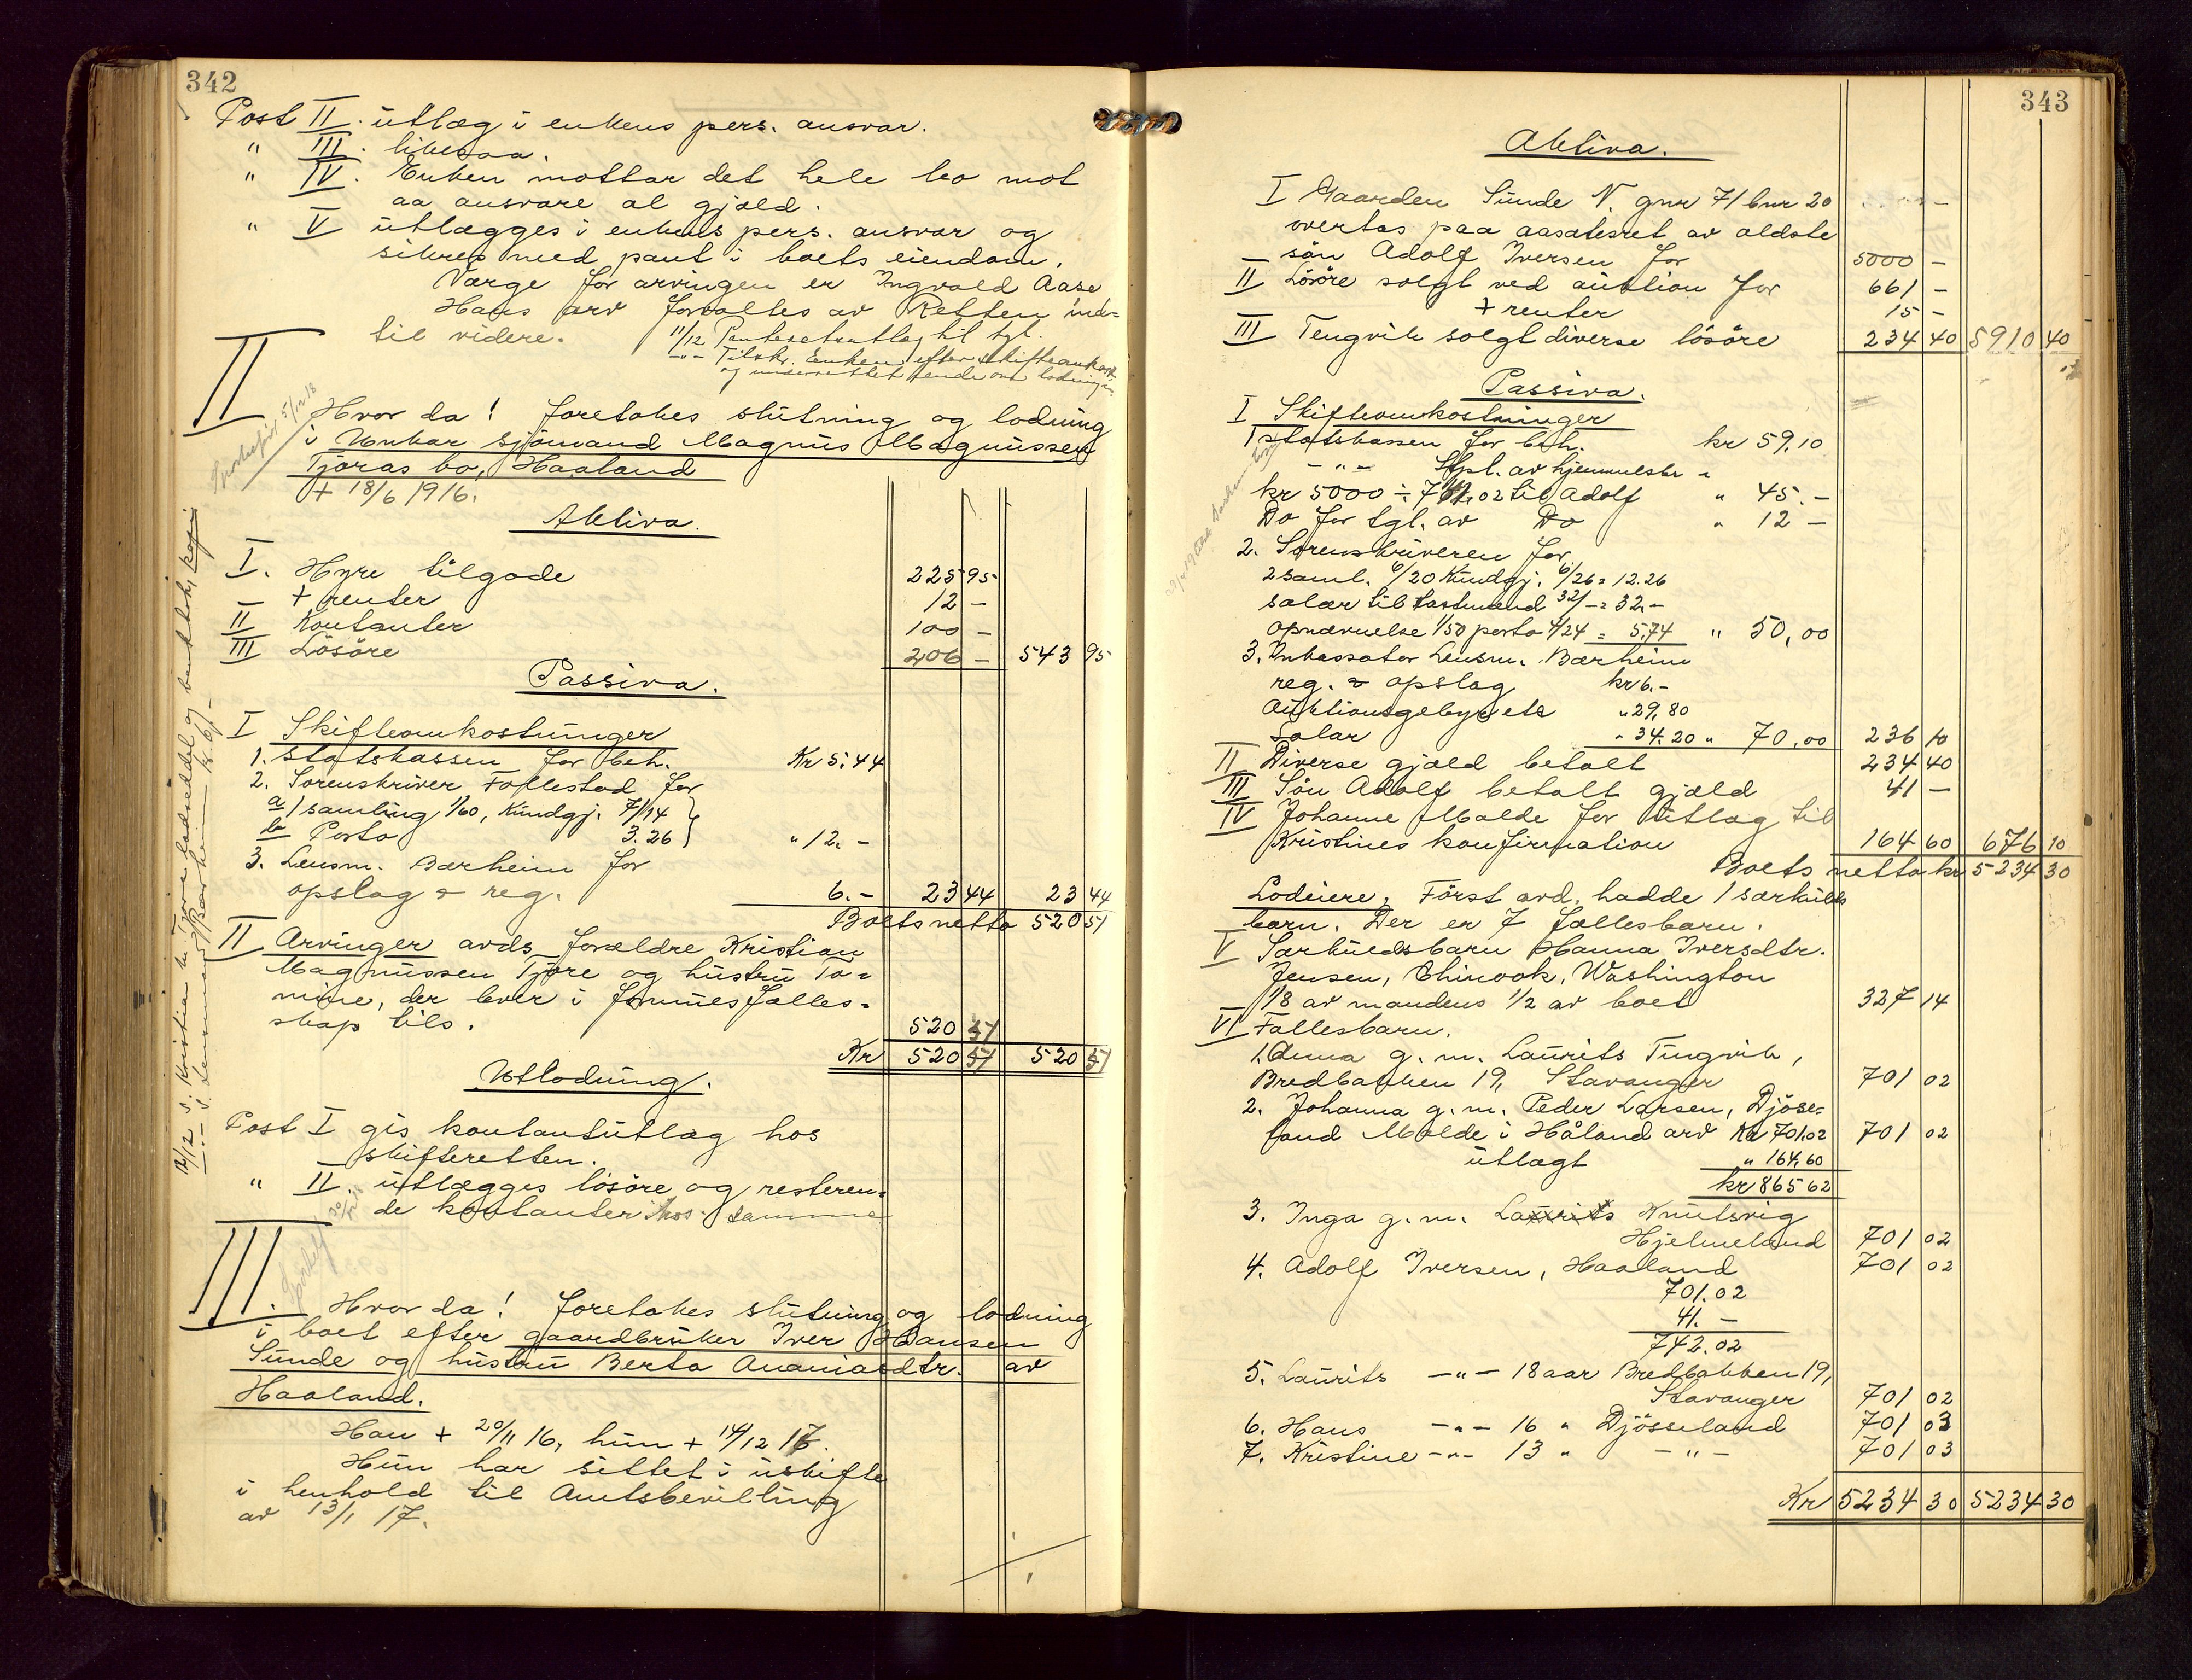 342
Post II. utlæg i enkens pers. ansvar.
" III. likesaa.
" IV. Enken mottar det hele bo mot
aa ansvare al gjæld.
" V utlægges i enkens pers. ansvar og
sikres med pant i boets eiendom.
Værge for arvingen er Ingvald Aase
Hans arv forvaltes av Retten ind=
til videre.
11/12 Panteretsutlæg til tgl.
-"- Tilskr. Enken efter skifteomkost.
og underrettet om lodningen
II
5/12 18
Hvor da! foretokes slutning og lodning
i Unkar sjömand Magnus Magnussen
Tjøras bo, Haaland
+ 18/6 1916.
Aktiva.
I. Hyre tilgode 225 95
+ renter 12 -
II Kontanter 100 -
III Lösöre 206 - 543 95
Passiva.
I Skifteomkostninger
1. Statskassen for beh. Kr 5.44
2. Sorenskriver Follestad for
a 1 samling 1/60, Kundgj. 7/14
b Porto 3.26 } " 12. -
3. Lensm. Bærheim for
opslag & reg. 6. - 23 44 23 44
Boets netto 520 51
II Arvinger avds. forældre Kristian
Magnussen Tjøre og hustru To=
mine, der lever i formuesfælles=
skap tils. 520 51
Kr 520 51 520 51
Utlodning.
Post I gis kontantutlæg hos
skifteretten.
" II. utlægges lösöre og resteren=
de kontanter hos samme
12/12 s. Kristian M. Tjøre lodseddel og bankbok, kopi
-"- s. lensmand Bærheim kr. 6/-
III.
Hvor da! foretokes slutning og lodning
i boet efter gaardbruker Iver Hansen
Sunde og hustru Berta Ananiasdtr. av
Haaland.
Han + 20/11 16, hun + 14/12 17.
Hun har sittet i uskifte
i henhold til Amtsbevilling
av 13/1 17.
343
Aktiva.
I Gaarden Sunde N. gnr 71 bnr 20
overtas paa aasætesret av ældste
sön Adolf Iversen for 5000 -
II Lösöre solgt ved auktion for 661 -
+ renter 15 -
III Tengvik solgt diverse lösöre 234 40 5910 40
Passiva.
I Skifteomkostninger
1 Statskassen for beh. kr 59.10
-"- Stpl. av hjemmelsbr =
kr 5000 ÷ 741.02 til Adolf " 45. -
Do for tgl. av Do " 12 -
2. Sorenskriveren for
2 saml. 6/20 Kundgj. 6/26 = 12.26
salær til tastmænd 32/- = 32. -
Opnævnelse 1/50 porto 4/24 = 5.74 " 50,00
3. Inkassator Lensm. Bærheim
reg. & opslag kr 6. -
Auktionsgebyr etc " 29,80
Salær " 34.20 " 70,00 236 10
II Diverse gjæld betalt 234 40
III Sön Adolf betalt gjæld 41 -
IV Johanne Malde for utlæg til
Kristines konfirmation 164 60 676 10
Boets netto kr 5234 30
Lodeiere, Först avd. hadde 1 særkulds
barn. Der er 7 fællesbarn.
V Særkuldsbarn Hanna Iversdtr.
Jensen, Chinook, Washington
1/8 av mandens 1/2 av boet 327 14
VI Fællesbarn.
1. Anna g. m. Laurits Tingvik,
Bredbakken 19, Stavanger 701 02
2. Johanna g. m. Peder Larsen, Djöse=
land Malde i Håland arv Kr 701.02 701 02
utlagt " 164,60
kr 865 62
3. Inga g. m. Laurits Knutsvig
Hjelmeland 701 02
4. Adolf Iversen, Haaland 701 02
701.02
41. -
742.02
5. Laurits -"- 18 aar Bredbakken 19,
Stavanger 701 02
6. Hans -"- 16 " Djösseland 701 03
7. Kristine -"- 13 " -"- 701 03
Kr 5234 30 5234 30